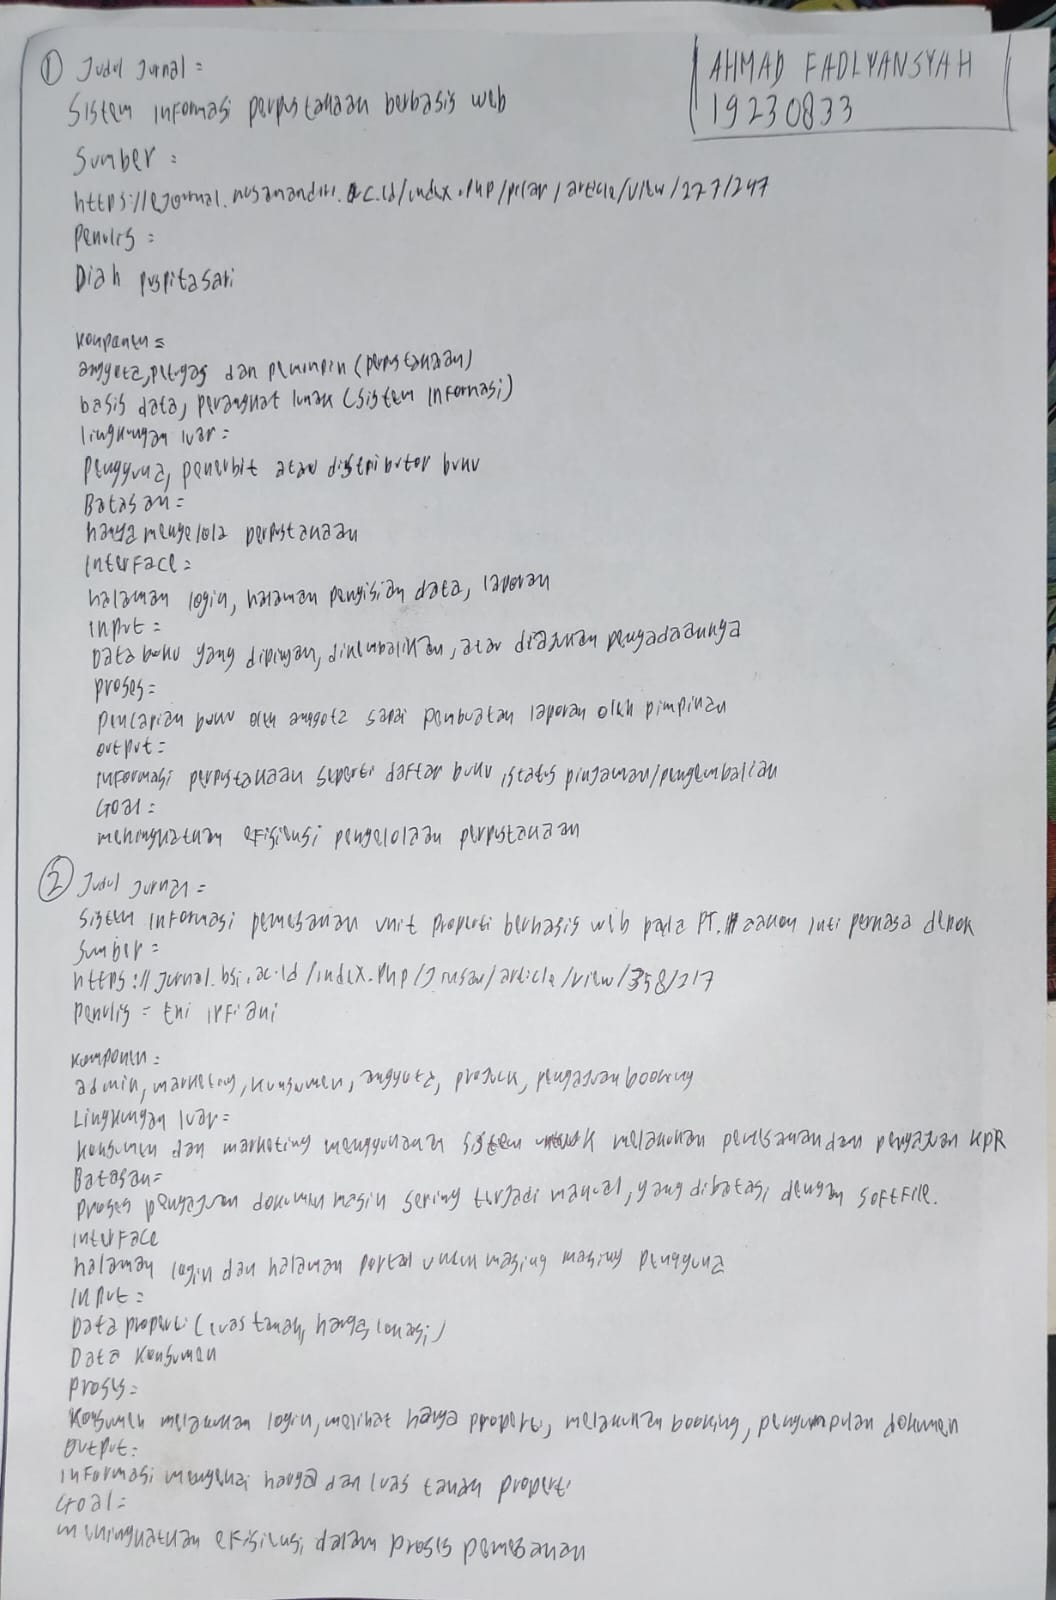 ① Judul Jurnal =
AHMAD FADLYANSYAH
19230833
Sistem informasi perpustakaan berbasis web
Sumber :
https://ejournal.nusamandiri.ac.id/index.php/pilar/article/view/227/247
Penulis =
Diah puspitasari
Komponen =
anggota, petugas dan pemimpin (perpustakaan)
basis data, perangkat lunak (sistem informasi)
lingkungan luar =
Pengguna, penerbit atau distributor buku
Batasan =
hanya mengelola perpustakaan
Interface =
halaman login, halaman pengisian data, laporan
input =
Data buku yang dipinjam, dikembalikan, atau diajukan pengadaannya
proses =
pencarian buku oleh anggota sapai pembuatan laporan oleh pimpinan
output =
informasi perpustakaan seperti daftar buku, status pinjaman/pengembalian
Goal =
meningkatkan efisiensi pengelolaan perpustakaan
② Judul Jurnal =
Sistem informasi pemesanan unit properti berbasis web pada PT. inti permasa depok
Sumber =
https://jurnal.bsi.ac.id/index.php/ /article/view/358/217
Penulis = Eni irfiani
Komponen =
admin, marketing, konsumen, anggota, produk, pengajuan booking
Lingkungan luar =
konsumen dan marketing menggunakan sistem untuk melakukan pemesanan dan pengajuan KPR
Batasan=
Proses pengajuan dokumen masih sering terjadi manual, yang dibatasi dengan softfile.
Interface
halaman login dan halaman portal untuk masing masing pengguna
Input =
Data properti (luas tanah, harga, lokasi)
Data Konsumen
proses =
Konsumen melakukan login, melihat harga properti, melakukan booking, pengumpulan dokumen
output:
informasi mengenai harga dan luas tanah properti
Goal =
meningkatkan efisiensi dalam proses pemesanan